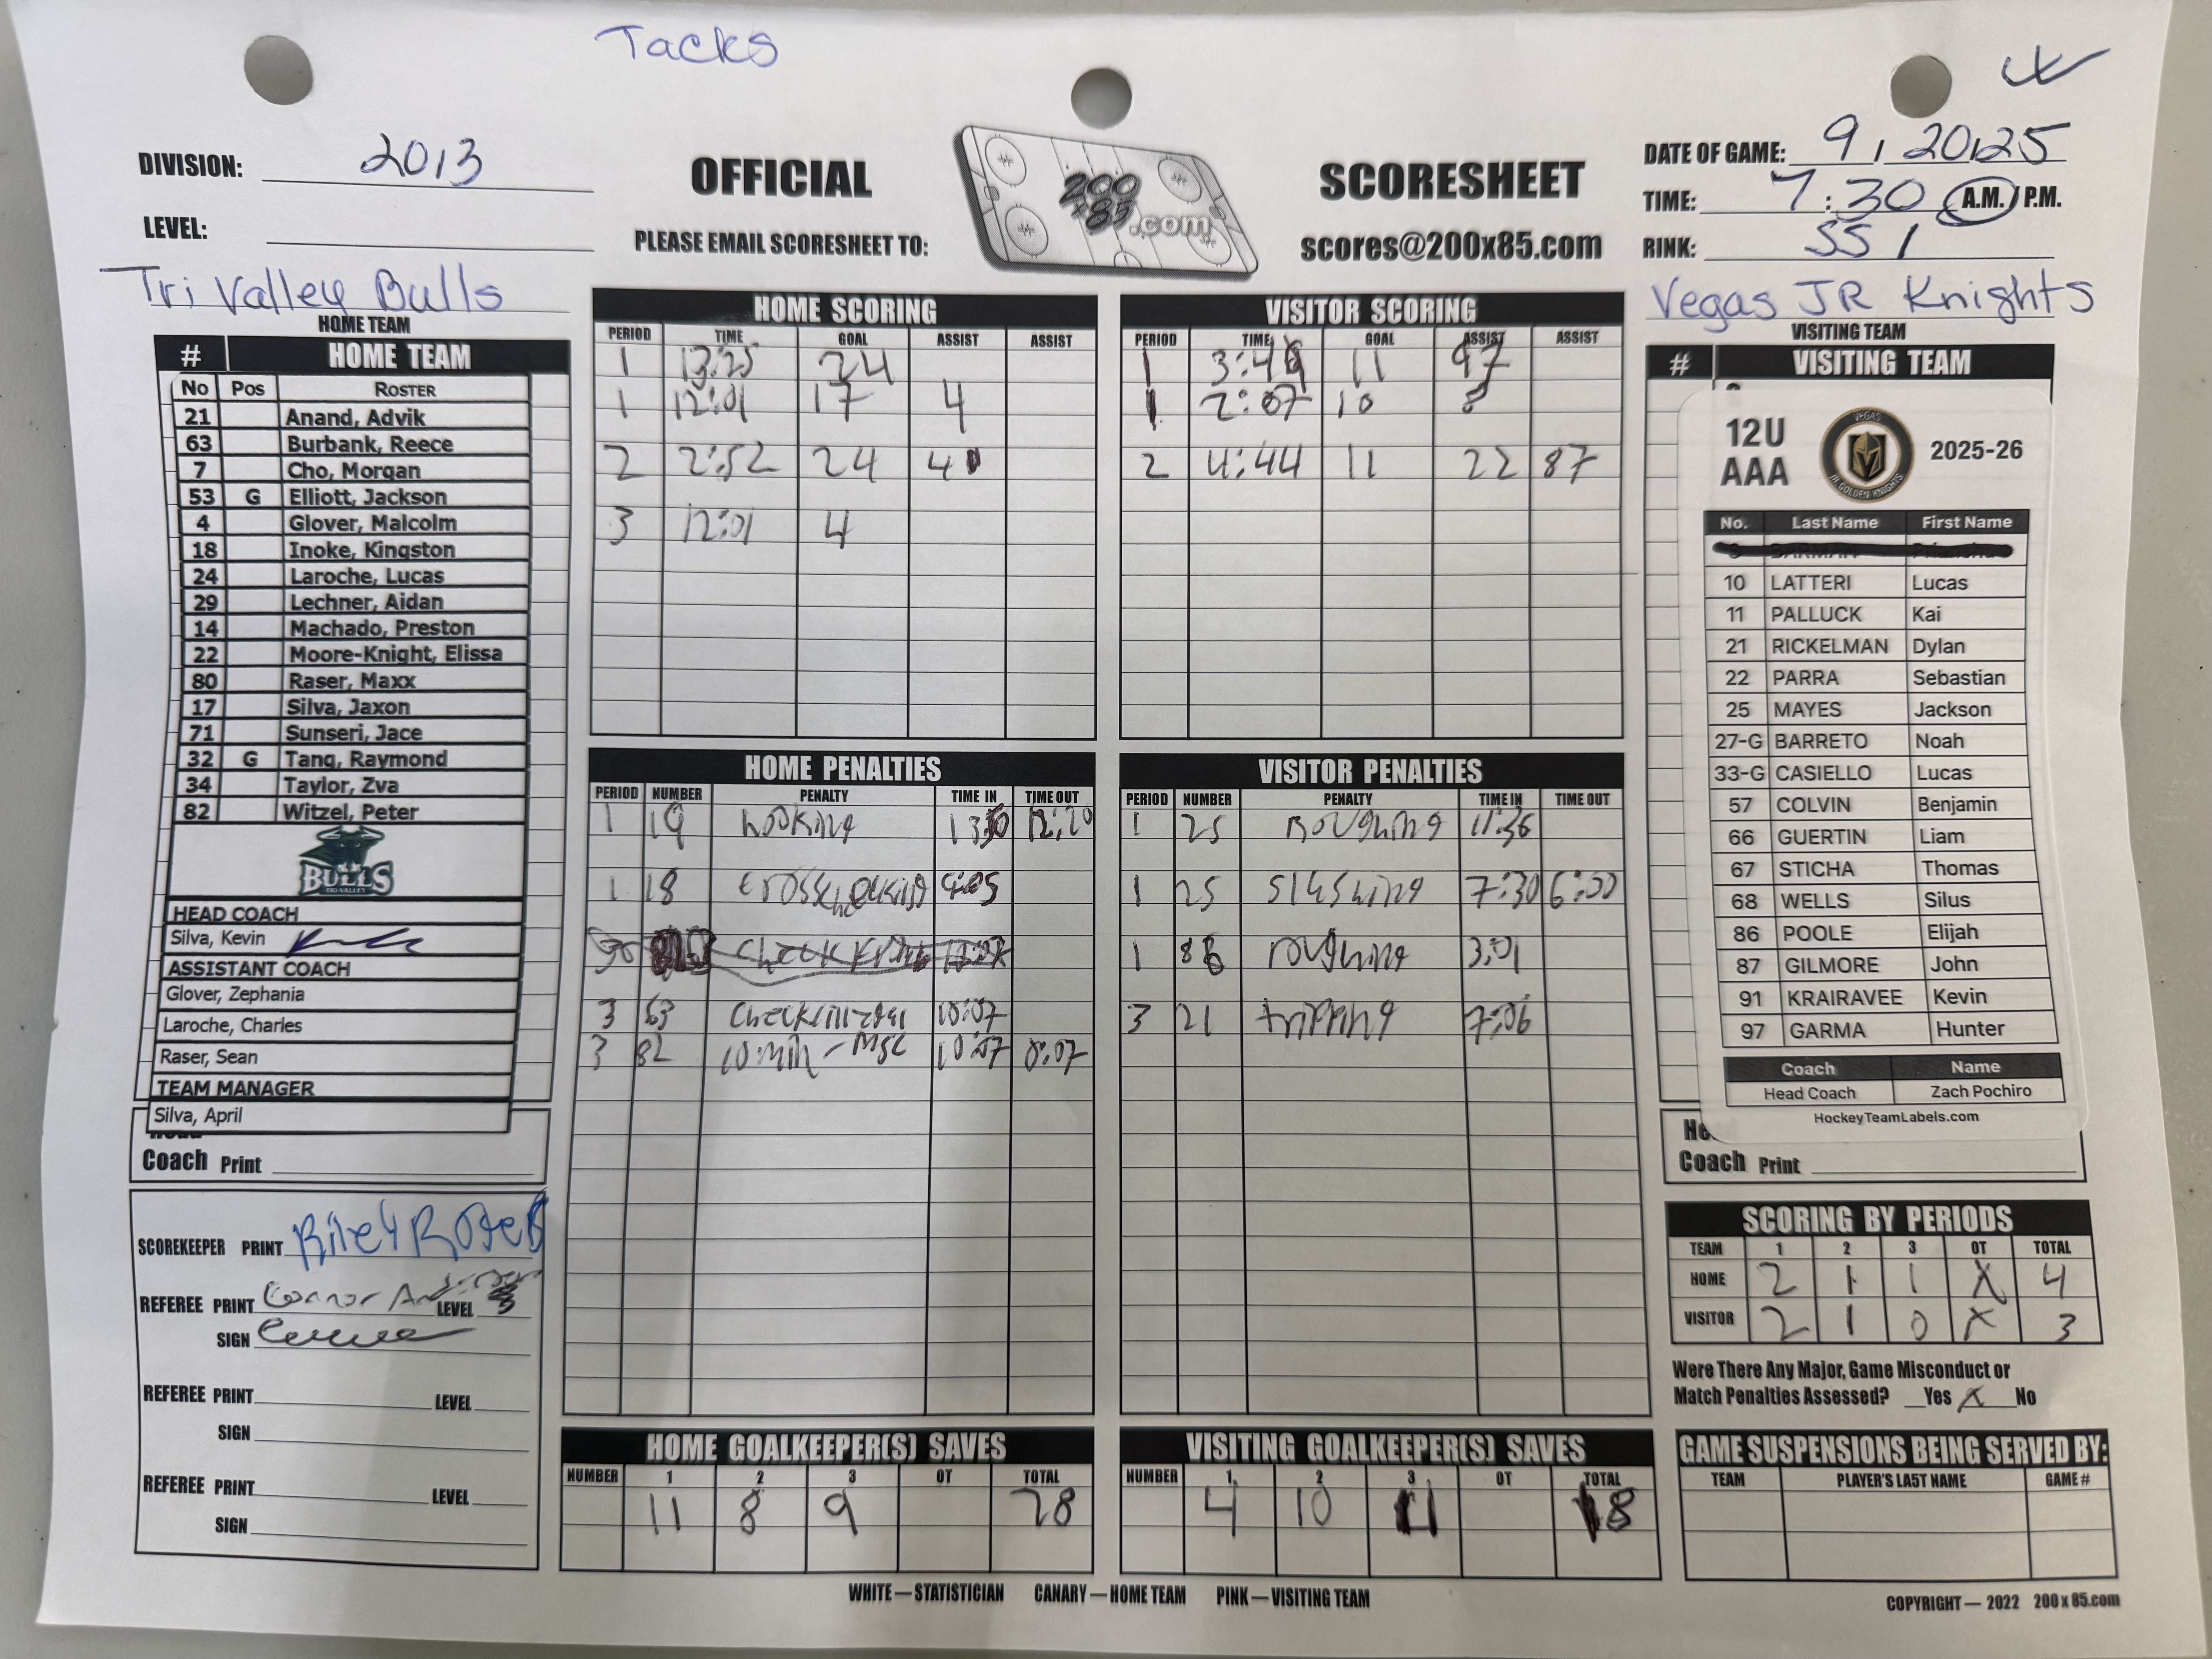 Tacks
DIVISION: 2013
OFFICIAL
200 x 85 .com
SCORESHEET
DATE OF GAME: 9, 20, 25
TIME: 7:30 A.M./P.M.
LEVEL:
PLEASE EMAIL SCORESHEET TO:
scores@200x85.com
RINK: SS 1
Tri Valley Bulls
HOME TEAM
# HOME TEAM
No Pos ROSTER
21 Anand, Advik
63 Burbank, Reece
7 Cho, Morgan
53 G Elliott, Jackson
4 Glover, Malcolm
18 Inoke, Kingston
24 Laroche, Lucas
29 Lechner, Aidan
14 Machado, Preston
22 Moore-Knight, Elissa
80 Raser, Maxx
17 Silva, Jaxon
71 Sunseri, Jace
32 G Tang, Raymond
34 Taylor, Zva
82 Witzel, Peter
BULLS
TRI-VALLEY
HEAD COACH
Silva, Kevin
ASSISTANT COACH
Glover, Zephania
Laroche, Charles
Raser, Sean
TEAM MANAGER
Silva, April
Coach Print
SCOREKEEPER PRINT Riley
REFEREE PRINT Connor LEVEL
SIGN
REFEREE PRINT LEVEL
SIGN
REFEREE PRINT LEVEL
SIGN
HOME SCORING
PERIOD TIME GOAL ASSIST ASSIST
1 13:25 24
1 12:01 17 4
2 2:52 24 4
3 12:01 4
VISITOR SCORING
PERIOD TIME GOAL ASSIST ASSIST
1 3:4 11 97
1 2:07 10 8
2 4:44 11 22 87
HOME PENALTIES
PERIOD NUMBER PENALTY TIME IN TIME OUT
1 19 hooking 12:20
1 18 crosschecking
3 63 10:07
3 82 10:min - Msc 10:07 0:07
VISITOR PENALTIES
PERIOD NUMBER PENALTY TIME IN TIME OUT
1 25 Roughing 11:36
1 25 Slashing 7:30 6:00
1 86 roughing 3:01
3 21 tripping 7:06
HOME GOALKEEPER(S) SAVES
NUMBER 1 2 3 OT TOTAL
11 8 9 28
VISITING GOALKEEPER(S) SAVES
NUMBER 1 2 3 OT TOTAL
4 10 18
Vegas JR Knights
VISITING TEAM
# VISITING TEAM
12U AAA
VEGAS
JR. GOLDEN KNIGHTS
2025-26
No. Last Name First Name
10 LATTERI Lucas
11 PALLUCK Kai
21 RICKELMAN Dylan
22 PARRA Sebastian
25 MAYES Jackson
27-G BARRETO Noah
33-G CASIELLO Lucas
57 COLVIN Benjamin
66 GUERTIN Liam
67 STICHA Thomas
68 WELLS Silus
86 POOLE Elijah
87 GILMORE John
91 KRAIRAVEE Kevin
97 GARMA Hunter
Coach Name
Head Coach Zach Pochiro
HockeyTeamLabels.com
Coach Print
SCORING BY PERIODS
TEAM 1 2 3 OT TOTAL
HOME 2 1 1 X 4
VISITOR 2 1 0 X 3
Were There Any Major, Game Misconduct or
Match Penalties Assessed? Yes X No
GAME SUSPENSIONS BEING SERVED BY:
TEAM PLAYER'S LAST NAME GAME #
WHITE — STATISTICIAN CANARY — HOME TEAM PINK — VISITING TEAM
COPYRIGHT — 2022 200 x 85.com